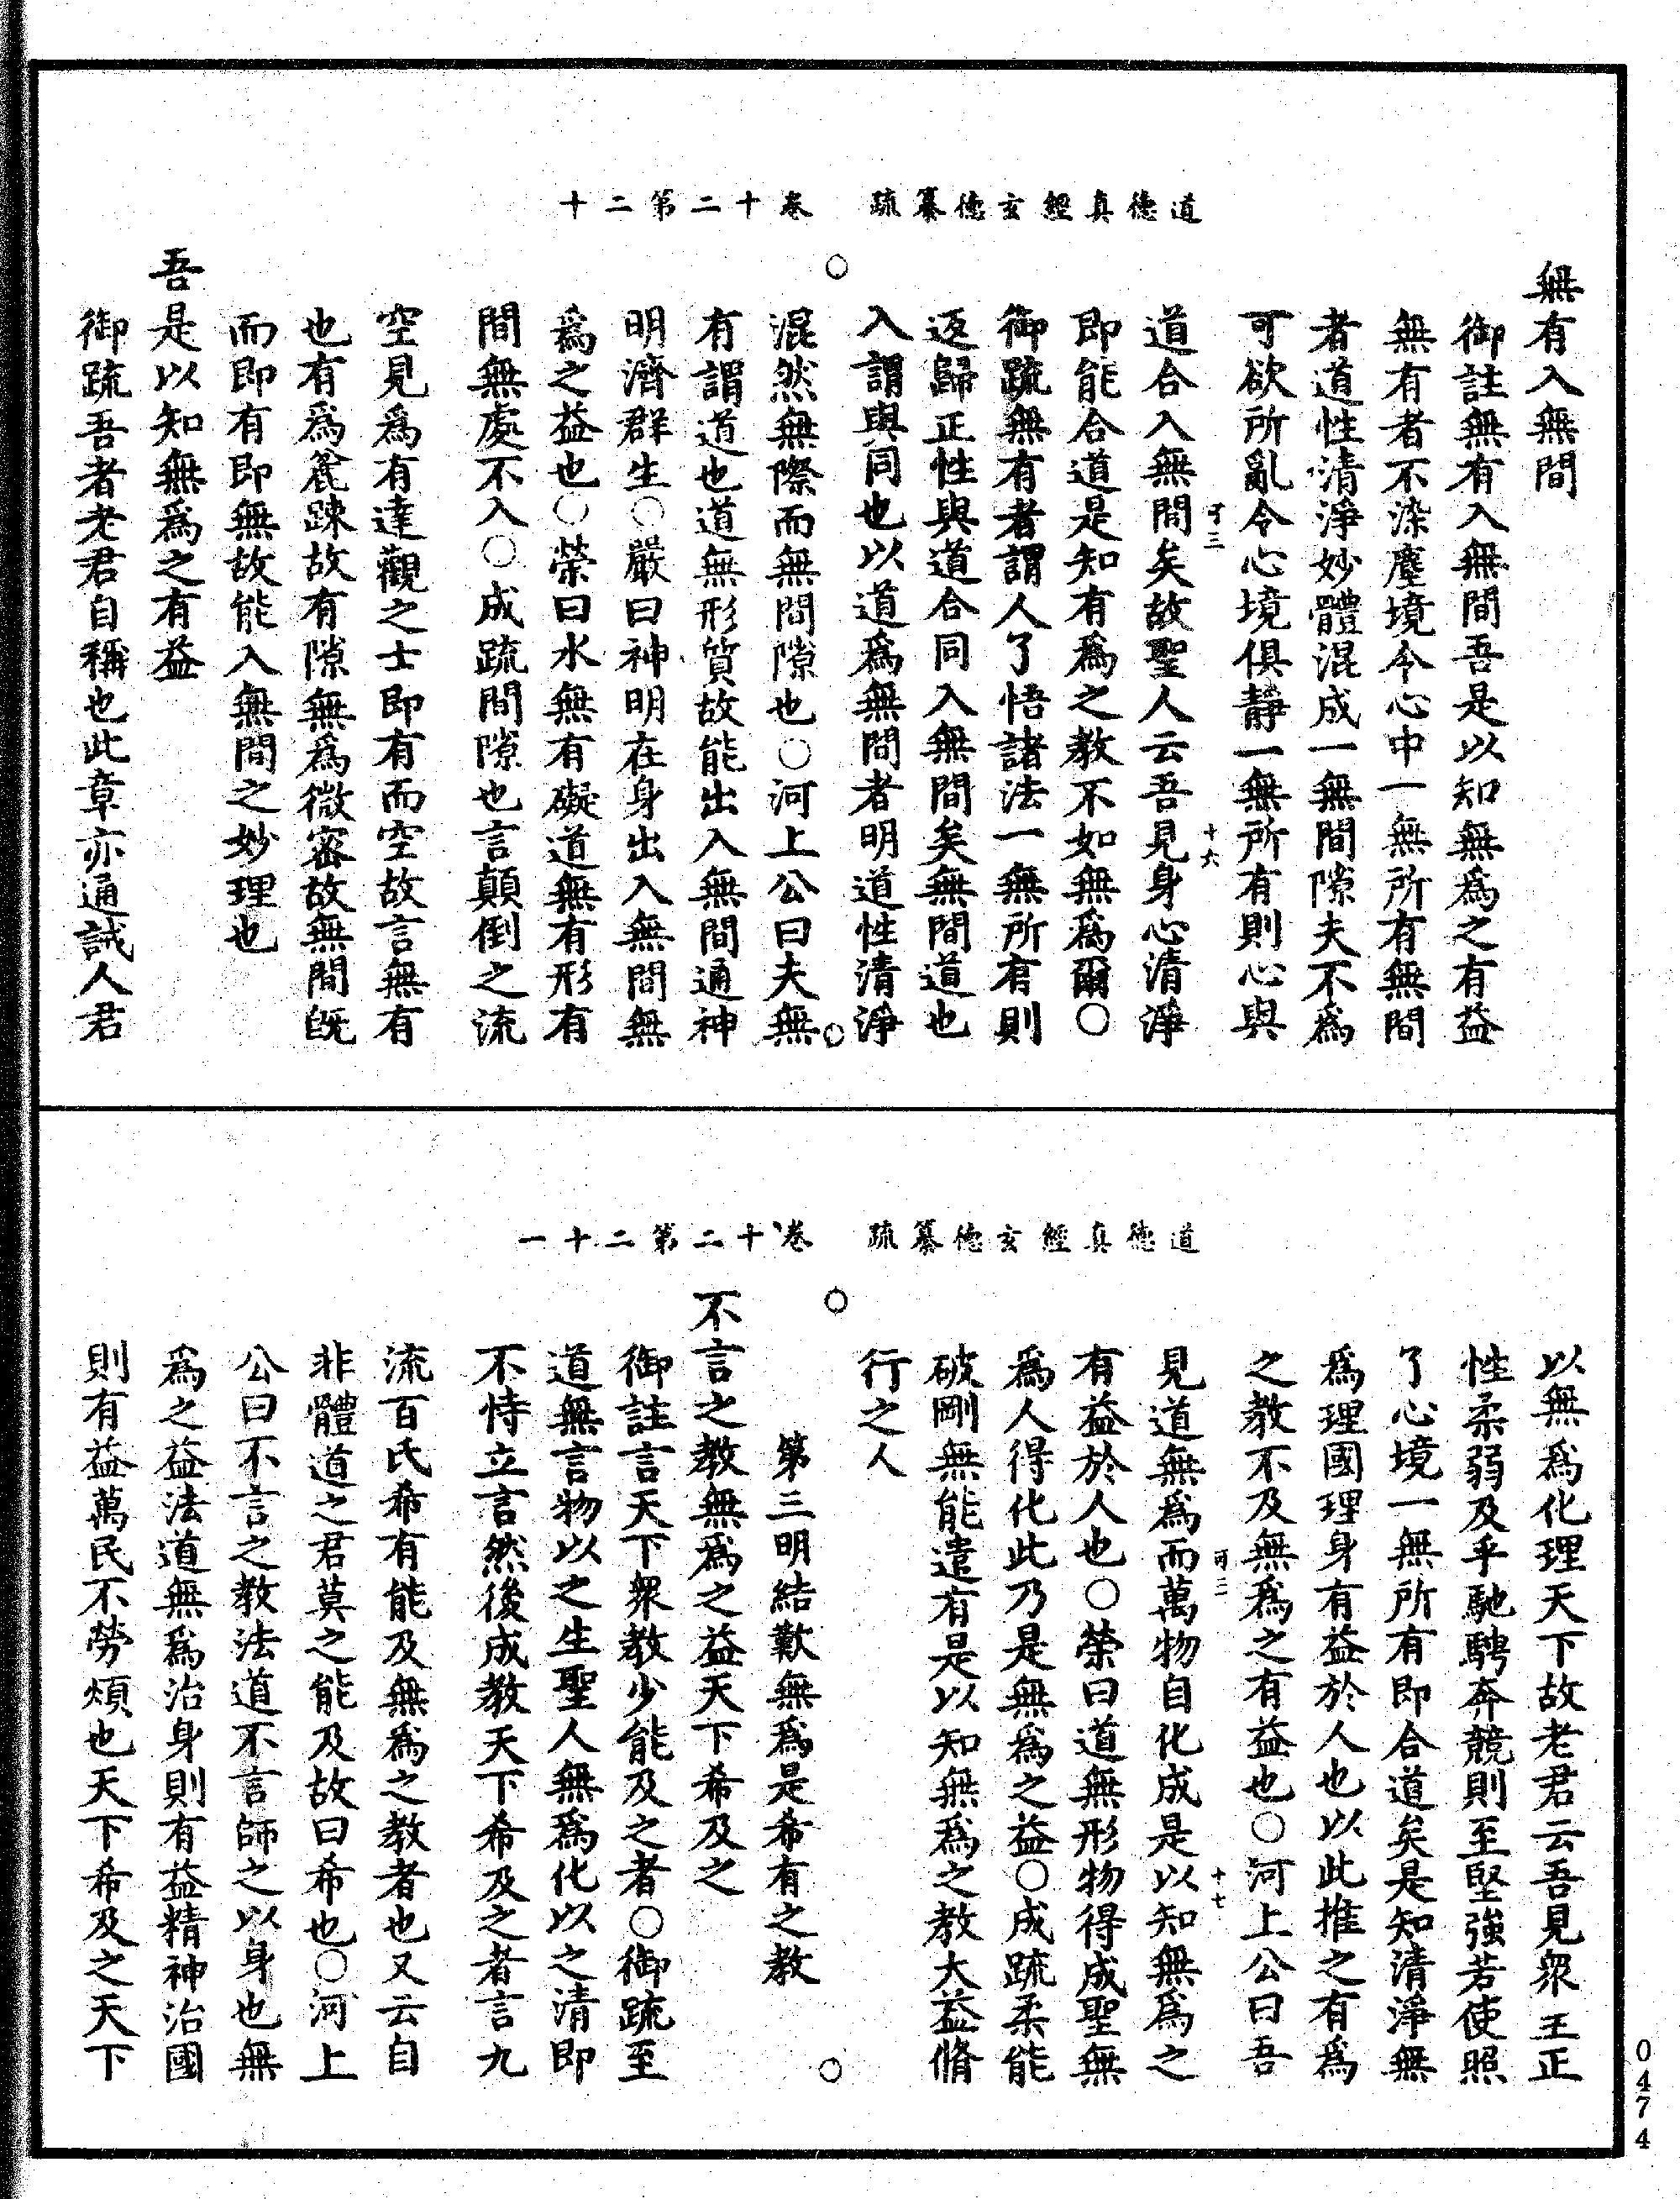 道德真經玄德纂疏　卷十二第二十
無有入無間
御註無有入無間吾是以知無為之有益
無有者不染塵境令心中一無所有無間
者道性清淨妙體混成一無間隙夫不為
可欲所亂令心境俱靜一無所有則心與
道合入無間矣故聖人云吾見身心清淨
可三
十六
即能合道是知有為之教不如無為爾○
御疏無有者謂人了悟諸法一無所有則
返歸正性與道合同入無間矣無間道也
入謂與同也以道為無間者明道性清淨
混然無際而無間隙也○河上公曰夫無
有謂道也道無形質故能出入無間通神
明濟群生○嚴曰神明在身出入無間無
為之益也○榮曰水無有礙道無有形有
間無處不入○成疏間隙也言顛倒之流
空見為有達觀之士即有而空故言無有
也有為麄踈故有隙無為微密故無間既
而即有即無故能入無間之妙理也
吾是以知無為之有益
御疏吾者老君自稱也此章亦通誡人君
道德真經玄德纂疏　卷十二第二十一
以無為化理天下故老君云吾見眾王正
性柔弱及乎馳騁奔競則至堅強若使照
了心境一無所有即合道矣是知清淨無
為理國理身有益於人也以此推之有為
之教不及無為之有益也○河上公曰吾
可三
十七
見道無為而萬物自化成是以知無為之
有益於人也○榮曰道無形物得成聖無
為人得化此乃是無為之益○成疏柔能
破剛無能遣有是以知無為之教大益脩
行之人
第三明結歎無為是希有之教
不言之教無為之益天下希及之
御註言天下眾教少能及之者○御疏至
道無言物以之生聖人無為化以之清即
不恃立言然後成教天下希及之者言九
流百氏希有能及無為之教者也又云自
非體道之君莫之能及故曰希也○河上
公曰不言之教法道不言師之以身也無
為之益法道無為治身則有益精神治國
則有益萬民不勞煩也天下希及之天下
0474